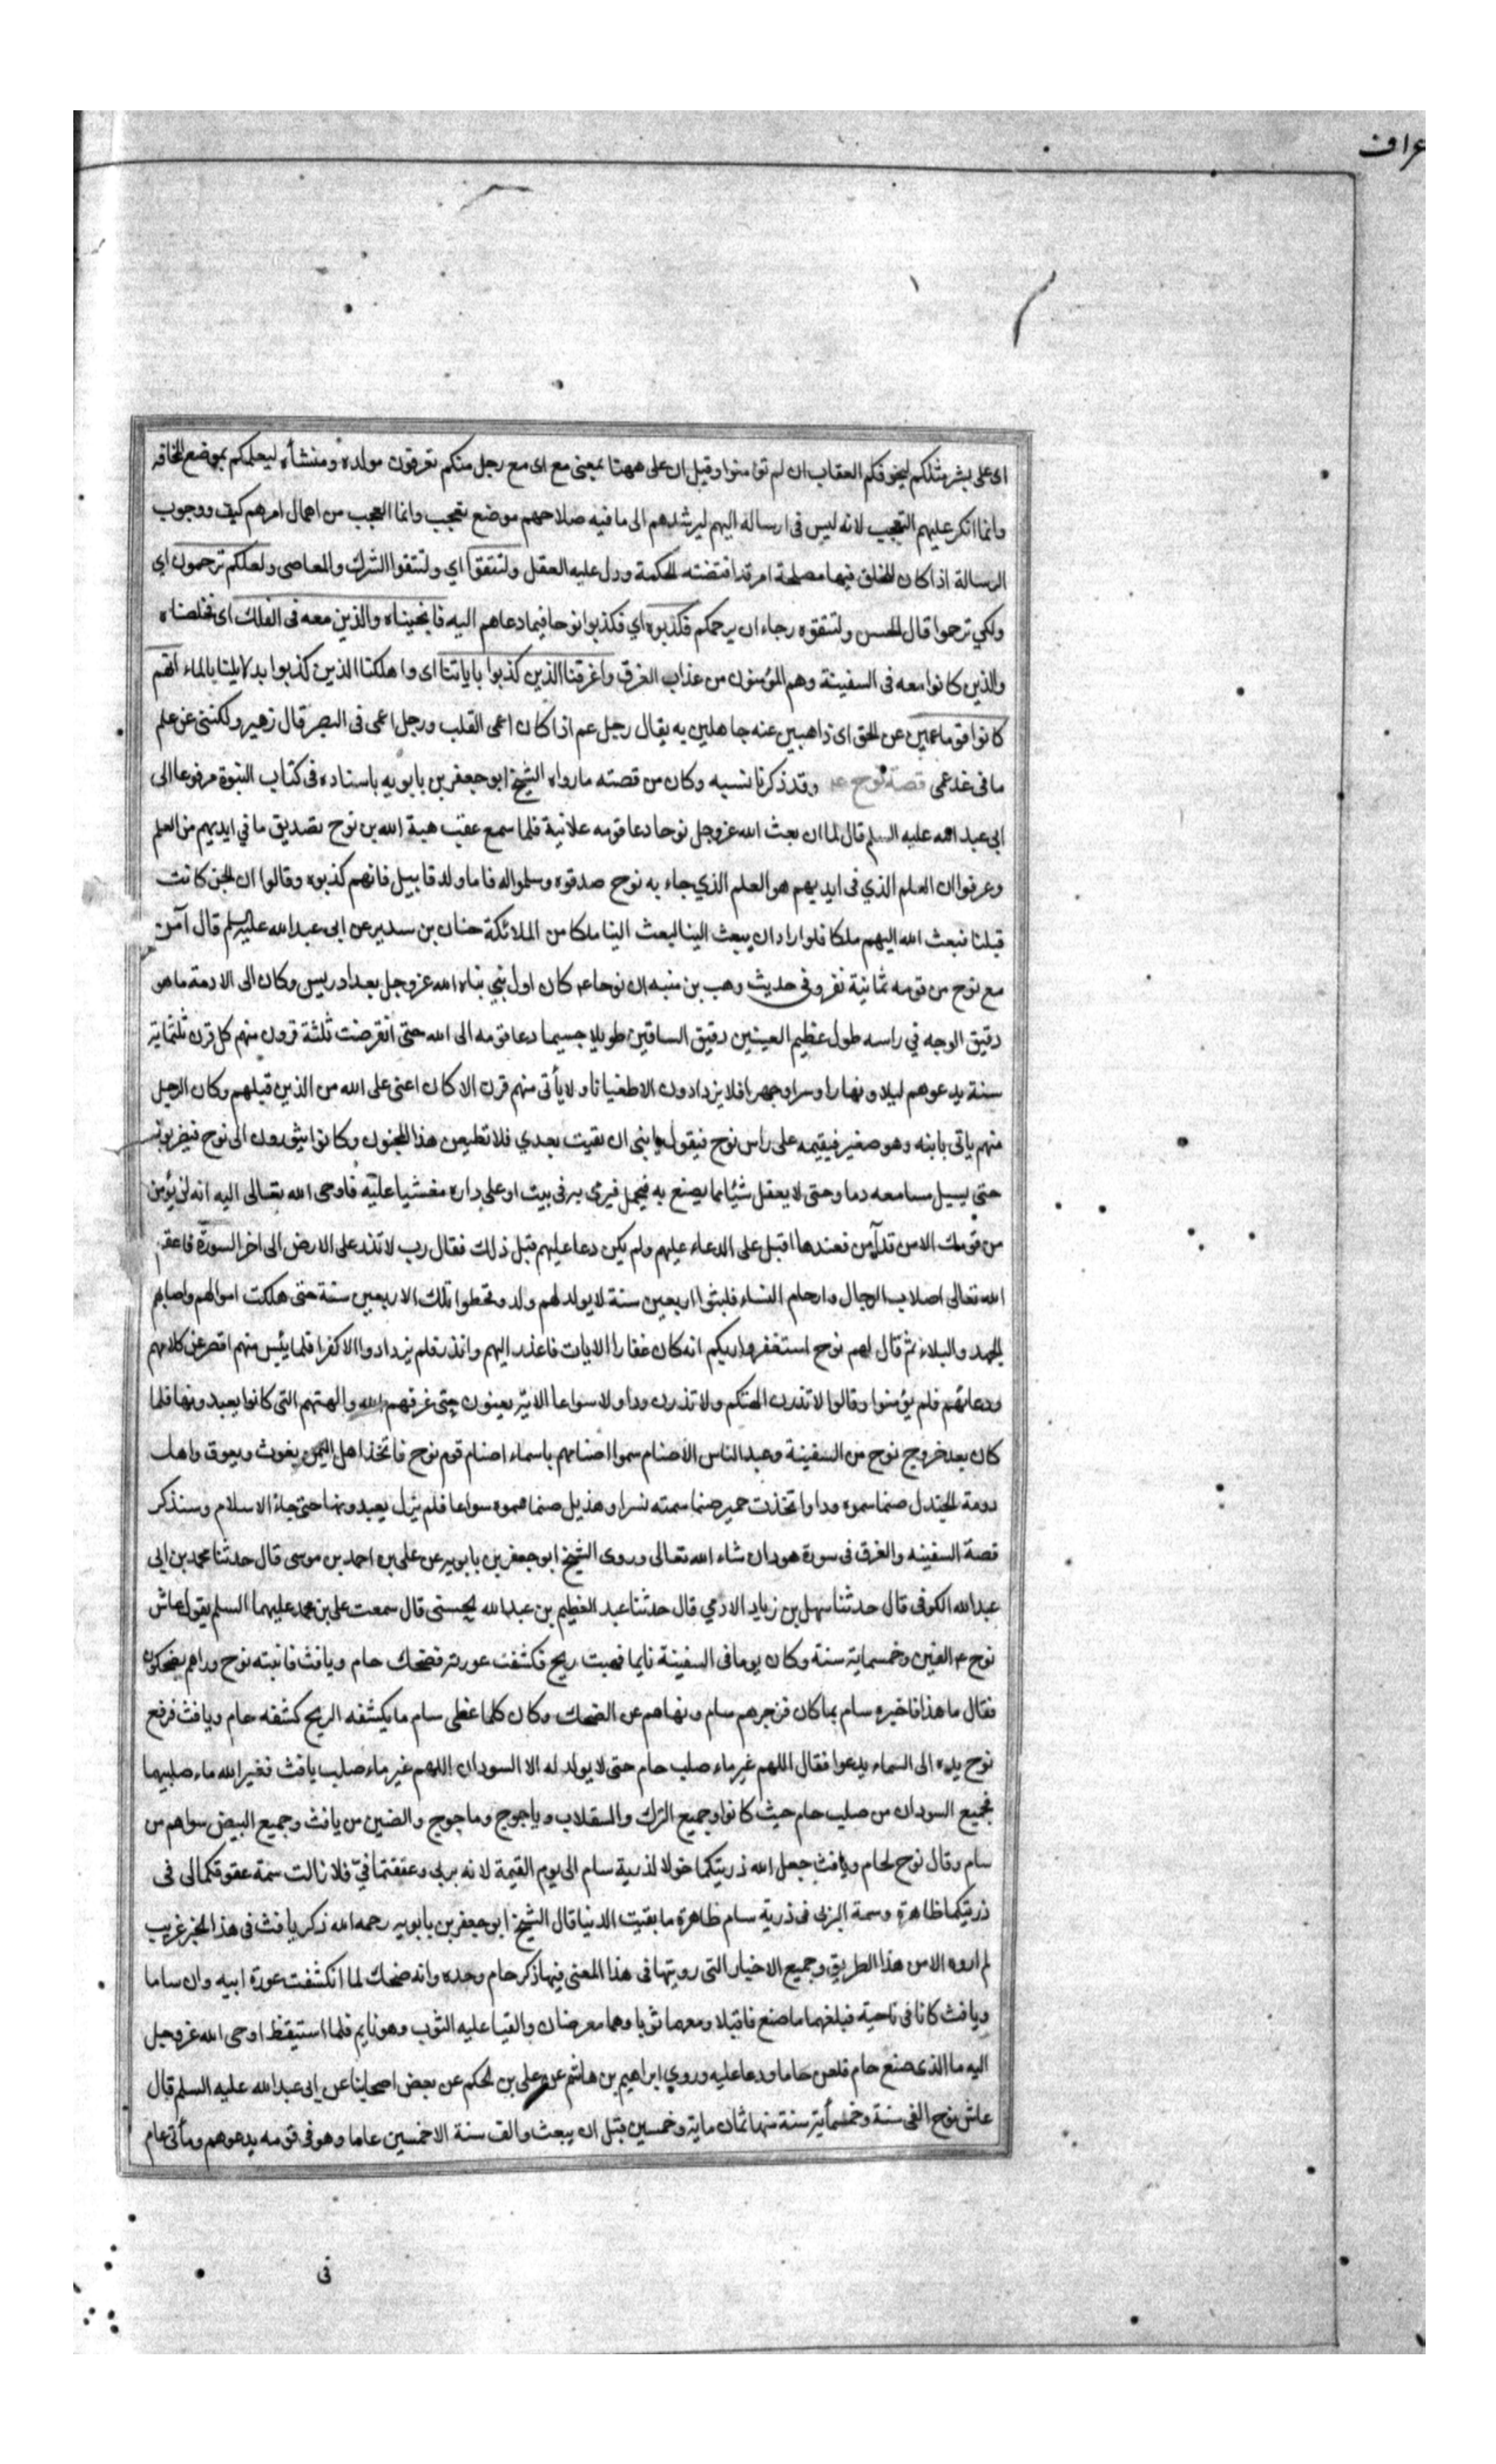 عراف
اى على بشر مثلكم ليخوفكم العقاب ان لم تؤمنوا وقيل ان على ههنا بمعنى مع اى مع رجل منكم تعرفون مولده ومنشأه ليعلمكم بموضع المخافة
وانما انكر عليهم التعجب لانه ليس فى ارساله اليهم ليرشدهم الى ما فيه صلاحهم موضع تعجب وانما العجب من اهمال امرهم كيف ووجوب
الرسالة اذا كان للخلق فيها مصلحة امر قد اقتضته الحكمة ودل عليه العقل ولتتقوا اي ولتتقوا الشرك والمعاصى ولعلكم ترحمون اي
ولكي ترحموا قال الحسن ولتتقوه رجاء ان يرحمكم فكذبوه اي فكذبوا نوحا فيما دعاهم اليه فانجيناه والذين معه فى الفلك اى فخلصناه
والذين كانوا معه فى السفينة وهم المؤمنون من عذاب الغرق واغرقنا الذين كذبوا باياتنا اى واهلكنا الذين كذبوا بدلايلنا بالماء انهم
كانوا قوما عمين عن الحق اى ذاهبين عنه جاهلين به يقال رجل عم اذا كان اعمى القلب ورجل اعمى فى البصر قال زهير ولكننى عن علم
ما فى غد عمى قصة نوح عم وقد ذكرنا نسبه وكان من قصته ما رواه الشيخ ابو جعفر بن بابويه باسناده فى كتاب النبوة مرفوعا الى
ابى عبد الله عليه السلم قال لما ان بعث الله عز وجل نوحا دعا قومه علانية فلما سمع عقب هبة الله بن نوح تصديق ما في ايديهم من العلم
وعرفوا ان العلم الذي فى ايديهم هو العلم الذي جاء به نوح صدقوه وسلموا له فاما ولد قابيل فانهم كذبوه وقالوا ان الجن كانت
قبلنا فبعث الله اليهم ملكا فلو اراد ان يبعث الينا لبعث الينا ملكا من الملائكة حنان بن سدير عن ابى عبد الله عليه السلم قال آمن
مع نوح من قومه ثمانية نفر وفى حديث وهب بن منبه ان نوحا عم كان اول نبي نباه الله عز وجل بعد ادريس وكان الى الادمة ما هو
دقيق الوجه في راسه طول عظيم العينين دقيق الساقين طويلا جسيما دعا قومه الى الله حتى انقرضت ثلثة قرون منهم كل قرن ثلثماية
سنة يدعوهم ليلا ونهارا وسرا وجهرا فلا يزدادون الا طغيانا ولا يأتى منهم قرن الا كان اعتى على الله من الذين قبلهم وكان الرجل
منهم ياتى بابنه وهو صغير فيقيمه على راس نوح فيقول يا بنى ان بقيت بعدي فلا تطيعن هذا المجنون وكانوا يثورون الى نوح فيضربونه
حتى يسيل مسامعه دما وحتى لا يعقل شيئا مما يصنع به فيحمل فيرمى به فى بيت او على داره مغشيا عليه فاوحى الله تعالى اليه انه لن يؤمن
من قومك الا من قد آمن فعندها اقبل على الدعاء عليهم ولم يكن دعا عليهم قبل ذلك فقال رب لا تذر على الارض الى اخر السورة فاعقم
الله تعالى اصلاب الرجال وارحام النساء فلبثوا اربعين سنة لا يولد لهم ولد وقحطوا تلك الاربعين سنة حتى هلكت اموالهم واصابهم
الجهد والبلاء ثم قال لهم نوح استغفروا ربكم انه كان غفارا الايات فاعذر اليهم وانذر فلم يزدادوا الا كفرا فلما يئس منهم اقصر عن كلامهم
ودعائهم فلم يؤمنوا وقالوا لا تذرن الهتكم ولا تذرن ودا ولا سواعا الاية يعنون حتى غرقهم الله والهتهم التى كانوا يعبدونها فلما
كان بعد خروج نوح من السفينة وعبد الناس الاصنام سموا اصنامهم باسماء اصنام قوم نوح فاتخذ اهل اليمن يغوث ويعوق واهل
دومة الجندل صنما سموه ودا واتخذت حمير صنما سمته نسرا وهذيل صنما سموه سواعا فلم يزل يعبدونها حتى جاء الاسلام وسنذكر
قصة السفينه والغرق فى سورة هود ان شاء الله تعالى وروى الشيخ ابو جعفر بن بابويه عن على بن احمد بن موسى قال حدثنا محمد بن ابى
عبد الله الكوفى قال حدثنا سهل بن زياد الادمي قال حدثنا عبد العظيم بن عبد الله الحسنى قال سمعت على بن محمد عليهما السلم يقول عاش
نوح عم الفين وخمسماية سنة وكان يوما فى السفينة نايما فهبت ريح فكشفت عورته فضحك حام ويافث فانتبه نوح وراهم يضحكون
فقال ما هذا فاخبره سام بما كان فزجرهم سام ونهاهم عن الضحك وكان كلما غطى سام ما يكشفه الريح كشفه حام ويافث فرفع
نوح يده الى السماء يدعوا فقال اللهم غير ماء صلب حام حتى لا يولد له الا السودان اللهم غير ماء صلب يافث فغير الله ماء صلبيهما
فجميع السودان من صلب حام حيث كانوا وجميع الترك والسقلاب وياجوج وماجوج والصين من يافث وجميع البيض سواهم من
سام وقال نوح لحام ويافث جعل الله ذريتكما خولا لذرية سام الى يوم القيمة لانه بر بى وعققتمانيّ فلا زالت سمة عقوقكما لى فى
ذريتكما ظاهرة وسمة البر بى فى ذرية سام ظاهرة ما بقيت الدنيا قال الشيخ ابو جعفر بن بابويه رحمه الله ذكر يافث فى هذا الخبر غريب
لم اروه الا من هذا الطريق وجميع الاخبار التى رويتها فى هذا المعنى فيها ذكر حام وحده وانه ضحك لما انكشفت عورة ابيه وان ساما
ويافث كانا فى ناحية فبلغهما ما صنع فاقبلا ومعهما ثوب وهما معرضان والقيا عليه الثوب وهو نايم فلما استيقظ اوحى الله عز وجل
اليه ما الذى صنع حام فلعن حاما ودعا عليه وروي ابراهيم بن هاشم عن على بن الحكم عن بعض اصحابنا عن ابى عبد الله عليه السلم قال
عاش نوح الفى سنة وخمسمأية سنة منها ثمان ماية وخمسين قبل ان يبعث والف سنة الا خمسين عاما وهو فى قومه يدعوهم ومأتى عام
فى